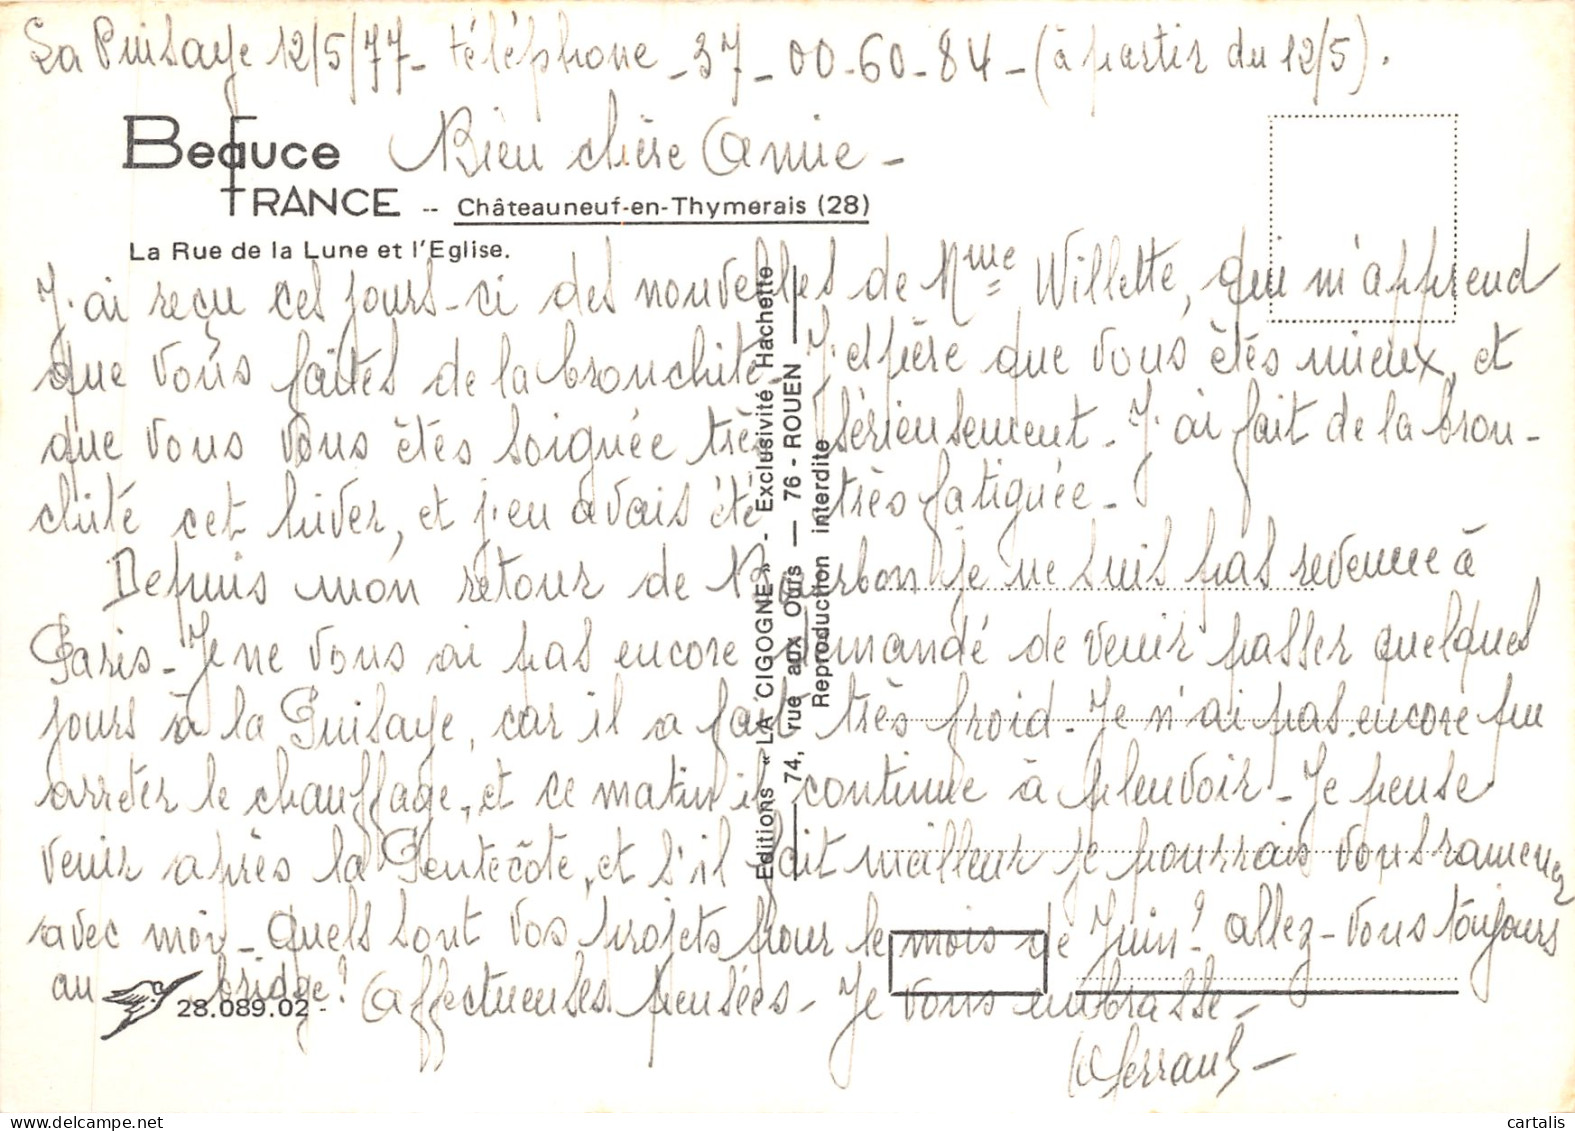 La Puisaye 12/5/77 - téléphone - 37 - 00-60-84 - (à partir du 12/5).
Beauce
FRANCE -- Châteauneuf-en-Thymerais (28)
La Rue de la Lune et l'Eglise.
Bien chère Amie -
J'ai reçu ces jours-ci des nouvelles de Mme Willette, qui m'apprend
que vous faites de la bronchite - J'espère que vous êtes mieux, et
que vous vous êtes soignée très sérieusement - J'ai fait de la bron-
chite cet hiver, et j'en avais été très fatiguée -
Depuis mon retour de Bourbon je ne suis pas revenue à
Paris - Je ne vous ai pas encore demandé de venir passer quelques
jours à la Puisaye, car il a fait très froid - Je n'ai pas encore pu
arrêter le chauffage, et ce matin il continue à pleuvoir - Je pense
venir après la Pentecôte, et s'il fait meilleur je pourrais vous ramener
avec moi - Quels sont vos projets pour le mois de Juin? allez-vous toujours
au bridge? Affectueuses pensées - Je vous embrasse -
28.089.02
Editions « LA CIGOGNE » - Exclusivité Hachette
74, rue aux Ours — 76 - ROUEN
Reproduction interdite
cartalis